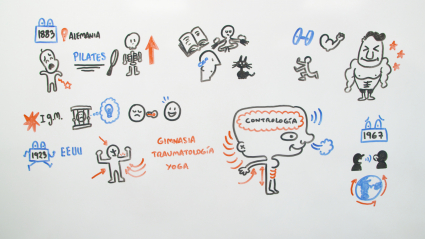 1883
ALEMANIA
PILATES
I G.M.
1923
EEUU
GIMNASIA
TRAUMATOLOGÍA
YOGA
CONTROLOGÍA
1967